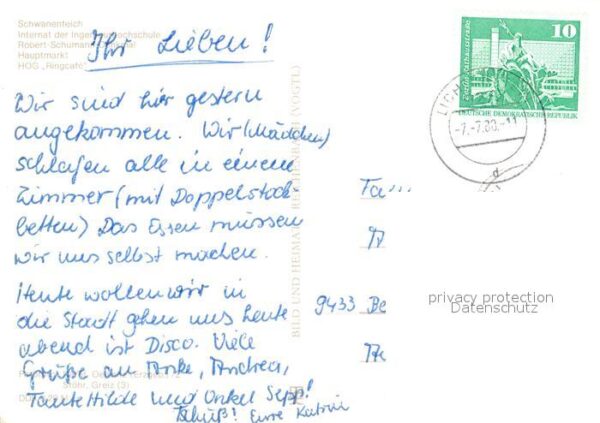 Schwanenteich
Internat der Ingenieurhochschule
Robert-Schumann-Denkmal
Hauptmarkt
HOG „Ringcafé"
Ihr Lieben!
Wir sind hier gestern
angekommen. Wir (Mädchen)
schlafen alle in einem
Zimmer (mit Doppelstock-
betten) Das Essen müssen
wir uns selbst machen.
Heute wollen wir in
die Stadt gehen und heute
abend ist Disco. Viele
Grüße an Anke, Andrea,
Tante Hilde und Onkel Sepp!
Tschüß! Eure Katrin
Stöhr, Greiz (3)
BILD UND HEIMAT REICHENBACH (VOGTL)
10
DEUTSCHE DEMOKRATISCHE REPUBLIK
-7.-7.80.-11
d
Ta
9433 Be
privacy protection
Datenschutz